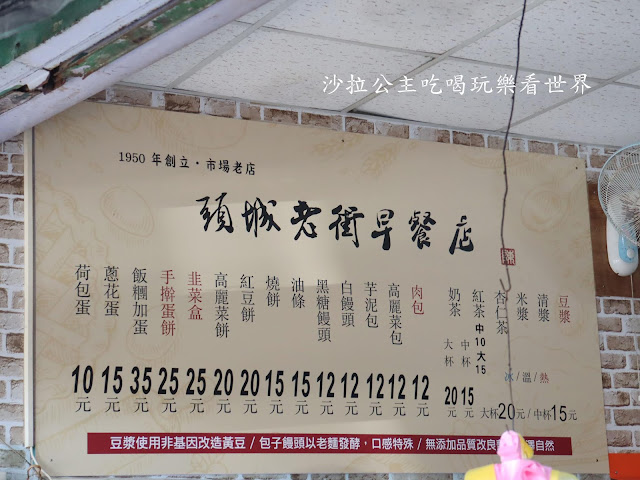 沙拉公主吃喝玩樂看世界
1950 年創立・市場老店
頭城老街早餐店
豆漿
清漿
米漿
杏仁茶
冰/溫/熱
大杯20元/中杯15元
紅茶 中10 大15
奶茶
中杯 15元
大杯 20元
肉包 12元
高麗菜包 12元
芋泥包 12元
白饅頭 12元
黑糖饅頭 12元
油條 15元
燒餅 15元
紅豆餅 20元
高麗菜餅 20元
韭菜盒 25元
手擀蛋餅 25元
飯糰加蛋 35元
蔥花蛋 15元
荷包蛋 10元
豆漿使用非基因改造黃豆 / 包子饅頭以老麵發酵，口感特殊 / 無添加品質改良 自然